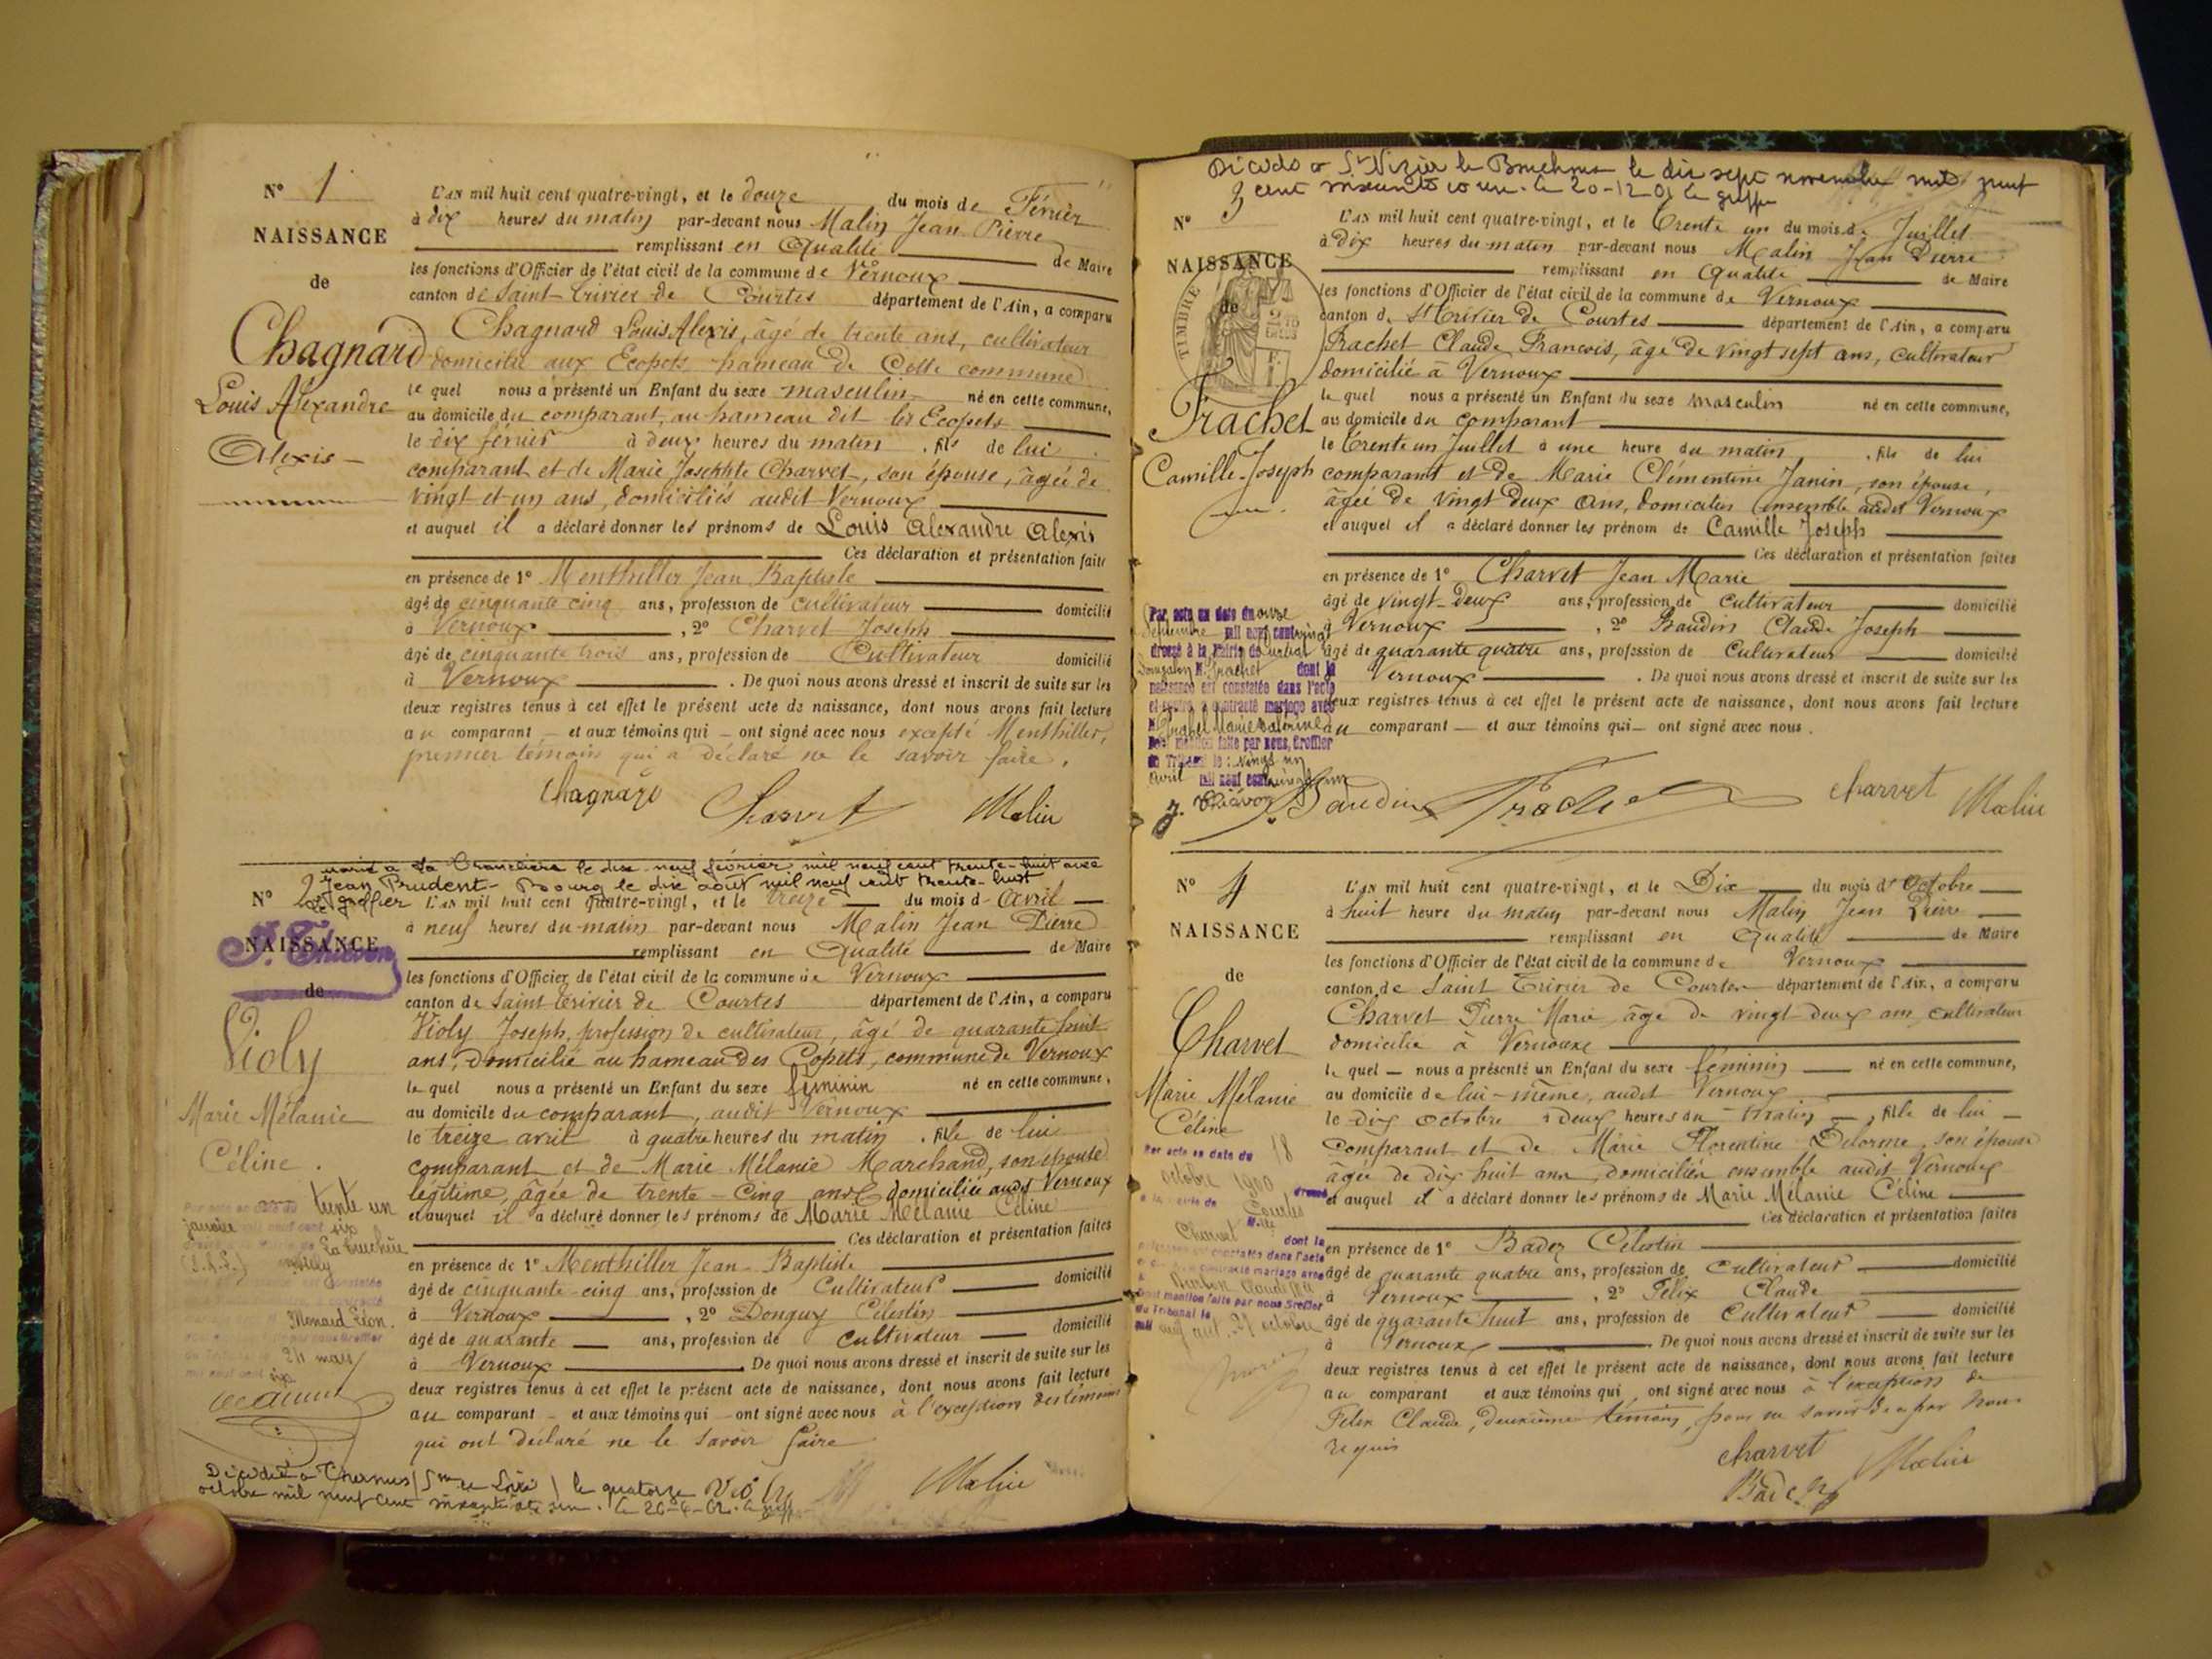 N° 1
NAISSANCE
de
Chagnard
Louis Alexandre
Alexis
L'AN mil huit cent quatre-vingt, et le douze du mois de Février
à dix heures du matin par-devant nous Malin Jean Pierre
remplissant en Qualité de Maire
les fonctions d'Officier de l'état civil de la commune de Vernoux
canton de Saint-Trivier de Courtes département de l'Ain, a comparu
Chagnard Louis Alexis, âgé de trente ans, cultivateur
domicilié aux Ecopets hameau de Cette commune
le quel nous a présenté un Enfant du sexe masculin né en cette commune,
au domicile du comparant, au hameau dit les Ecopets
le dix février à deux heures du matin, fils de lui
comparant et de Marie Josephte Charvet, son épouse, âgée de
vingt et un ans, domiciliés audit Vernoux
et auquel il a déclaré donner les prénoms de Louis Alexandre Alexis
Ces déclaration et présentation faite
en présence de 1° Menthiller Jean Baptiste
âgé de cinquante cinq ans, profession de cultivateur domicilié
à Vernoux, 2° Charvet Joseph
âgé de cinquante trois ans, profession de Cultivateur domicilié
à Vernoux. De quoi nous avons dressé et inscrit de suite sur les
deux registres tenus à cet effet le présent acte de naissance, dont nous avons fait lecture
au comparant et aux témoins qui ont signé avec nous excepté Menthiller,
premier témoin qui a déclaré ne le savoir faire.
Chagnard Charvet Malin
le dix neuf février mil neuf cent trente-huit avec
Jean Prudent - Bourg le dix août mil neuf cent trente-huit
Le greffier
N° 2
NAISSANCE
de
Violy
Marie Mélanie
Céline.
L'AN mil huit cent quatre-vingt, et le treize du mois d'Avril
à neuf heures du matin par-devant nous Malin Jean Pierre
remplissant en Qualité de Maire
les fonctions d'Officier de l'état civil de la commune de Vernoux
canton de Saint Trivier de Courtes département de l'Ain, a comparu
Violy Joseph, profession de cultivateur, âgé de quarante huit
ans, domicilié au hameau des Copets, commune de Vernoux
le quel nous a présenté un Enfant du sexe féminin né en cette commune,
au domicile du comparant, audit Vernoux
le treize avril à quatre heures du matin, fille de lui
comparant et de Marie Mélanie Marchand, son épouse
légitime, âgée de trente-Cinq ans domiciliée audit Vernoux
et auquel il a déclaré donner les prénoms de Marie Mélanie Céline
Ces déclaration et présentation faites
en présence de 1° Menthiller Jean-Baptiste
âgé de cinquante-cinq ans, profession de Cultivateur domicilié
à Vernoux, 2° Donguy Célestin
âgé de quarante ans, profession de Cultivateur domicilié
à Vernoux. De quoi nous avons dressé et inscrit de suite sur les
deux registres tenus à cet effet le présent acte de naissance, dont nous avons fait lecture
au comparant et aux témoins qui ont signé avec nous à l'exception des témoins
qui ont déclaré ne le savoir faire
trente un
janvier six
Menard Léon.
24 mars
Violy Malin
le quatorze
octobre mil neuf cent soixante et un. le 26-4-62.
Décédé à St Nizier le Bouchoux le dix sept novembre mil neuf
cent soixante et un. le 20-12-61 le greffier
N° 3
NAISSANCE
de
TIMBRE
Frachet
Camille-Joseph
L'AN mil huit cent quatre-vingt, et le Trente un du mois de Juillet
à Dix heures du matin par-devant nous Malin Jean Pierre
remplissant en Qualité de Maire
les fonctions d'Officier de l'état civil de la commune de Vernoux
canton de St Trivier de Courtes département de l'Ain, a comparu
Frachet Claude François, âgé de vingt sept ans, cultivateur
domicilié à Vernoux
le quel nous a présenté un Enfant du sexe masculin né en cette commune,
au domicile du comparant
le Trente un Juillet à une heure du matin, fils de lui
comparant et de Marie Clémentine Janin, son épouse,
âgée de vingt deux ans, domiciliés ensemble audit Vernoux
et auquel il a déclaré donner les prénom de Camille Joseph
Ces déclaration et présentation faites
en présence de 1° Charvet Jean Marie
âgé de vingt-deux ans, profession de Cultivateur domicilié
à Vernoux, 2° Baudin Claude Joseph
âgé de quarante quatre ans, profession de Cultivateur domicilié
à Vernoux. De quoi nous avons dressé et inscrit de suite sur les
deux registres tenus à cet effet le présent acte de naissance, dont nous avons fait lecture
au comparant et aux témoins qui ont signé avec nous.
Par acte en date du onze
Septembre mil neuf cent vingt
dressé à la Mairie de
Frachet dont la
naissance est constatée dans l'acte
ci-contre a contracté mariage avec
Dont mention faite par nous, Greffier
du Tribunal le vingt un
avril mil neuf cent vingt
Baudin Frachet Charvet Malin
N° 4
NAISSANCE
de
Charvet
Marie Mélanie
Céline
L'AN mil huit cent quatre-vingt, et le Dix du mois d'Octobre
à huit heure du matin par-devant nous Malin Jean Pierre
remplissant en Qualité de Maire
les fonctions d'Officier de l'état civil de la commune de Vernoux
canton de Saint Trivier de Courtes département de l'Ain, a comparu
Charvet Pierre Marie âgé de vingt deux ans, cultivateur
domicilié à Vernoux
le quel nous a présenté un Enfant du sexe féminin né en cette commune,
au domicile de lui-même, audit Vernoux
le dix octobre à deux heures du matin, fille de lui
comparant et de Marie Florentine Delorme, son épouse
âgée de dix huit ans, domiciliés ensemble audit Vernoux
et auquel il a déclaré donner les prénoms de Marie Mélanie Céline
Ces déclaration et présentation faites
en présence de 1° Badez Célestin
âgé de quarante quatre ans, profession de Cultivateur domicilié
à Vernoux, 2° Félix Claude
âgé de quarante huit ans, profession de Cultivateur domicilié
à Vernoux. De quoi nous avons dressé et inscrit de suite sur les
deux registres tenus à cet effet le présent acte de naissance, dont nous avons fait lecture
au comparant et aux témoins qui ont signé avec nous à l'exception de
Félix Claude, deuxième témoin, pour ne savoir de ce par nous
requis
Par acte en date du 18
octobre 1900
Courtes
Charvet dont la
constatée dans l'acte
contracté mariage avec
Dont mention faite par nous Greffier
du Tribunal le
octobre
Charvet Malin
Badez